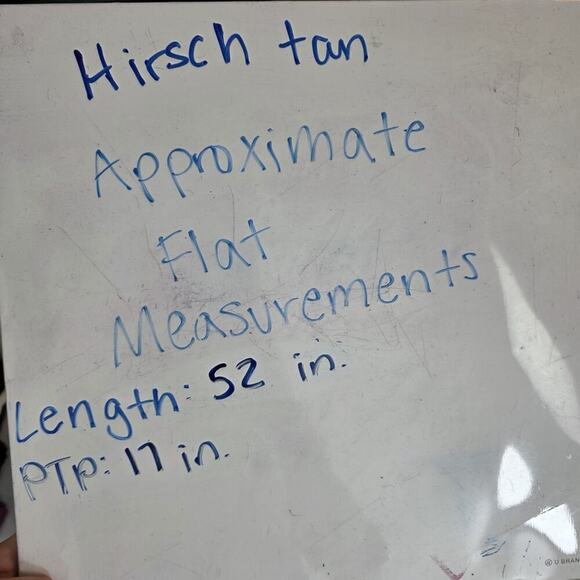 Hirsch tan
Approximate
Flat
Measurements
Length: 52 in.
PTP: 17 in.
U BRAN